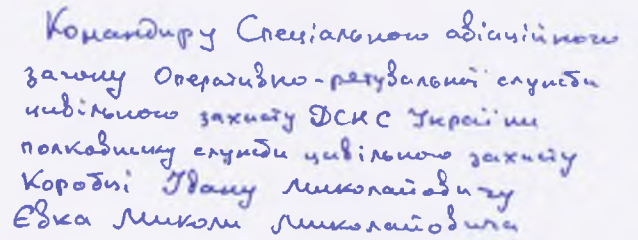 Командиру Спеціального авіаційного
загону Оперативно-рятувальної служби
цивільного захисту ДСНС України
полковнику служби цивільного захисту
Коробці Івану Миколайовичу
Євка Миколи Миколайовича